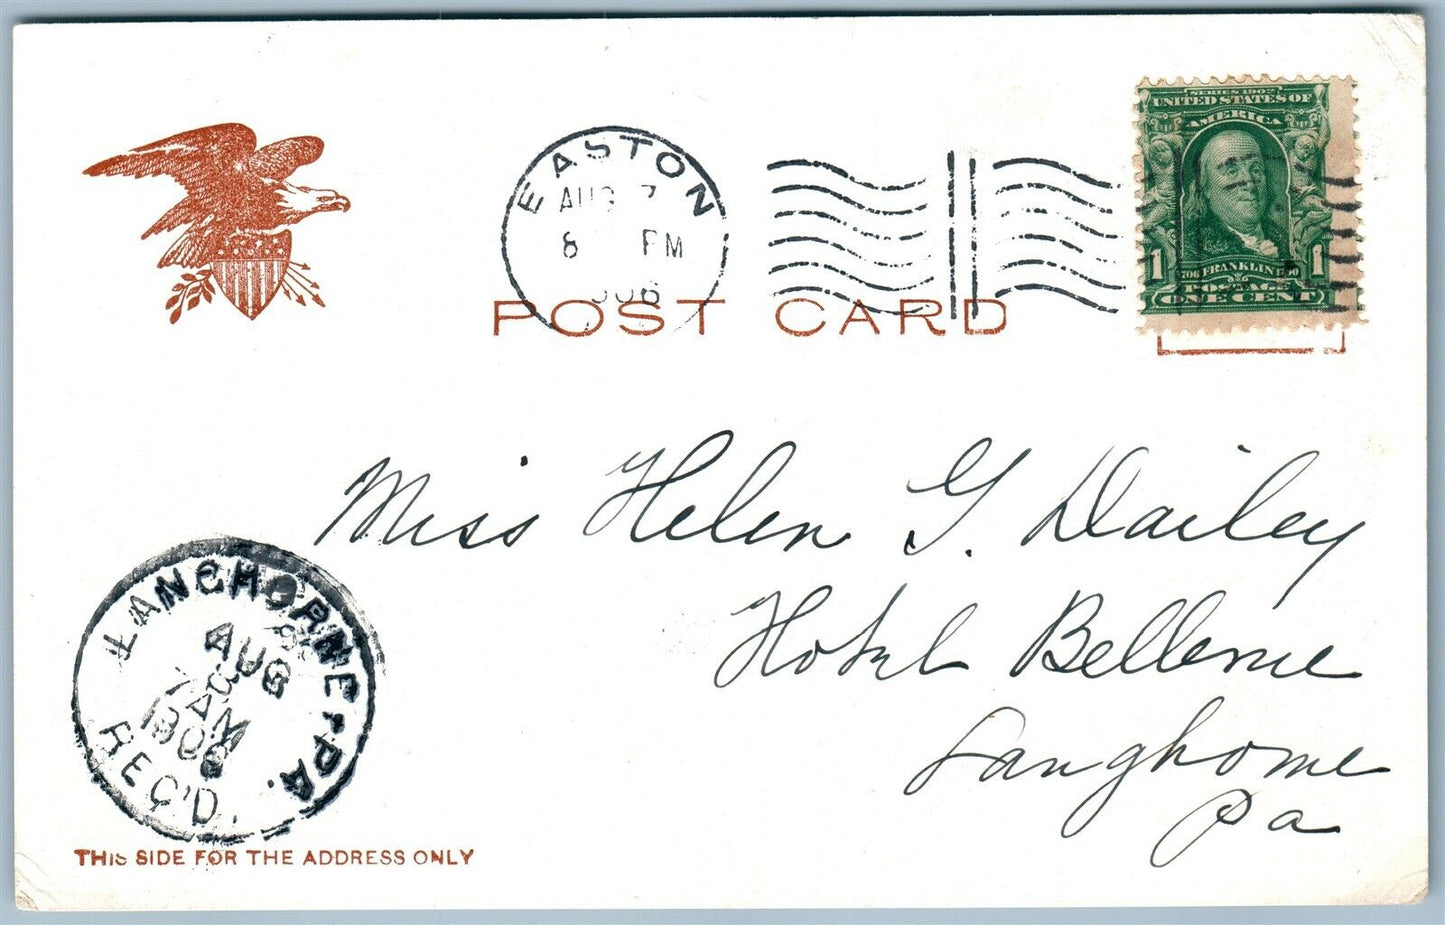 SERIES 1902
UNITED STATES OF
AMERICA
EASTON
AUG 7
8 PM
906
1706 FRANKLIN 1790
1 1
POSTAGE
ONE CENT
POST CARD
Miss Helen G. Dailey
Hotel Bellevue
Langhorne
Pa
LANGHORNE, PA.
AUG 8
7 AM
1906
REC'D.
THIS SIDE FOR THE ADDRESS ONLY